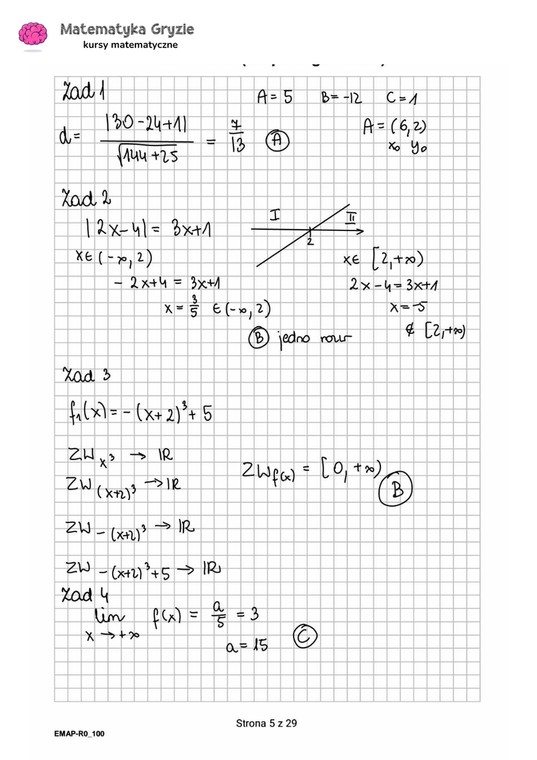 Matematyka Gryzie
kursy matematyczne
Zad 1
A = 5 B = -12 C = 1
d = |30-24+1| / √144+25 = 7/13 (A)
A = (6,2)
x₀ y₀
Zad 2
|2x-4| = 3x+1
I II
2
x∈(-∞, 2)
-2x+4 = 3x+1
x = 3/5 ∈(-∞, 2)
x∈ [2,+∞)
2x-4 = 3x+1
x = -5
∉ [2,+∞)
(B) jedno rozw
Zad 3
f₁(x) = -(x+2)³ + 5
ZW x³ → ℝ
ZW (x+2)³ → ℝ
ZW f(x) = [0, +∞)
(B)
ZW -(x+2)³ → ℝ
ZW -(x+2)³+5 → ℝ
Zad 4
lim f(x) = a/5 = 3
x → +∞
a = 15 (C)
Strona 5 z 29
EMAP-R0_100